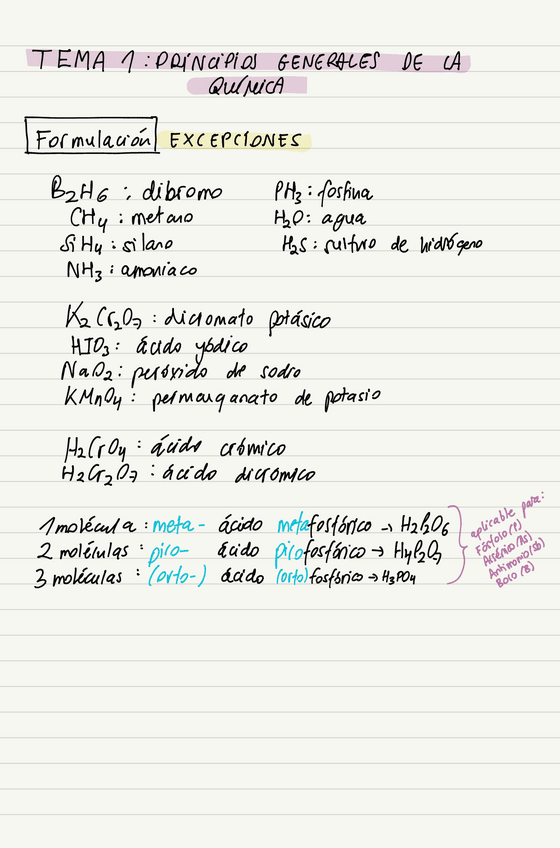 TEMA 1: PRINCIPIOS GENERALES DE LA
QUÍMICA
Formulación EXCEPCIONES
B2H6 : dibromo
CH4 : metano
SiH4 : silano
NH3 : amoniaco
PH3 : fosfina
H2O : agua
H2S : sulfuro de hidrógeno
K2Cr2O7 : dicromato potásico
HIO3 : ácido yódico
NaO2 : peróxido de sodio
KMnO4 : permanganato de potasio
H2CrO4 : ácido crómico
H2Cr2O7 : ácido dicrómico
1 molécula : meta- ácido metafosfórico → H2P2O6
2 moléculas : piro- ácido pirofosfórico → H4P2O7
3 moléculas : (orto-) ácido (orto)fosfórico → H3PO4
aplicable para:
Fósforo (P)
Arsénico (As)
Antimonio (Sb)
Boro (B)